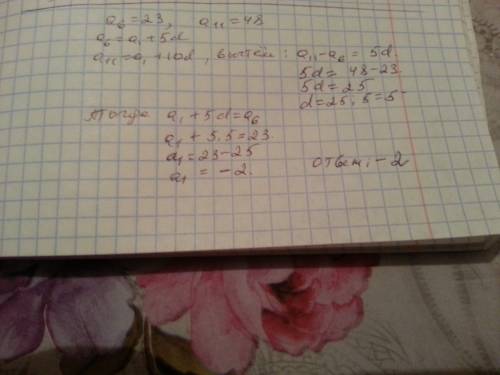 a₆ = 23, a₁₁ = 48
a₆ = a₁ + 5d
a₁₁ = a₁ + 10d, вычтем: a₁₁ - a₆ = 5d.
5d = 48 - 23
5d = 25
d = 25 : 5 = 5
Тогда a₁ + 5d = a₆
a₁ + 5·5 = 23
a₁ = 23 - 25
a₁ = -2.
ответ: -2